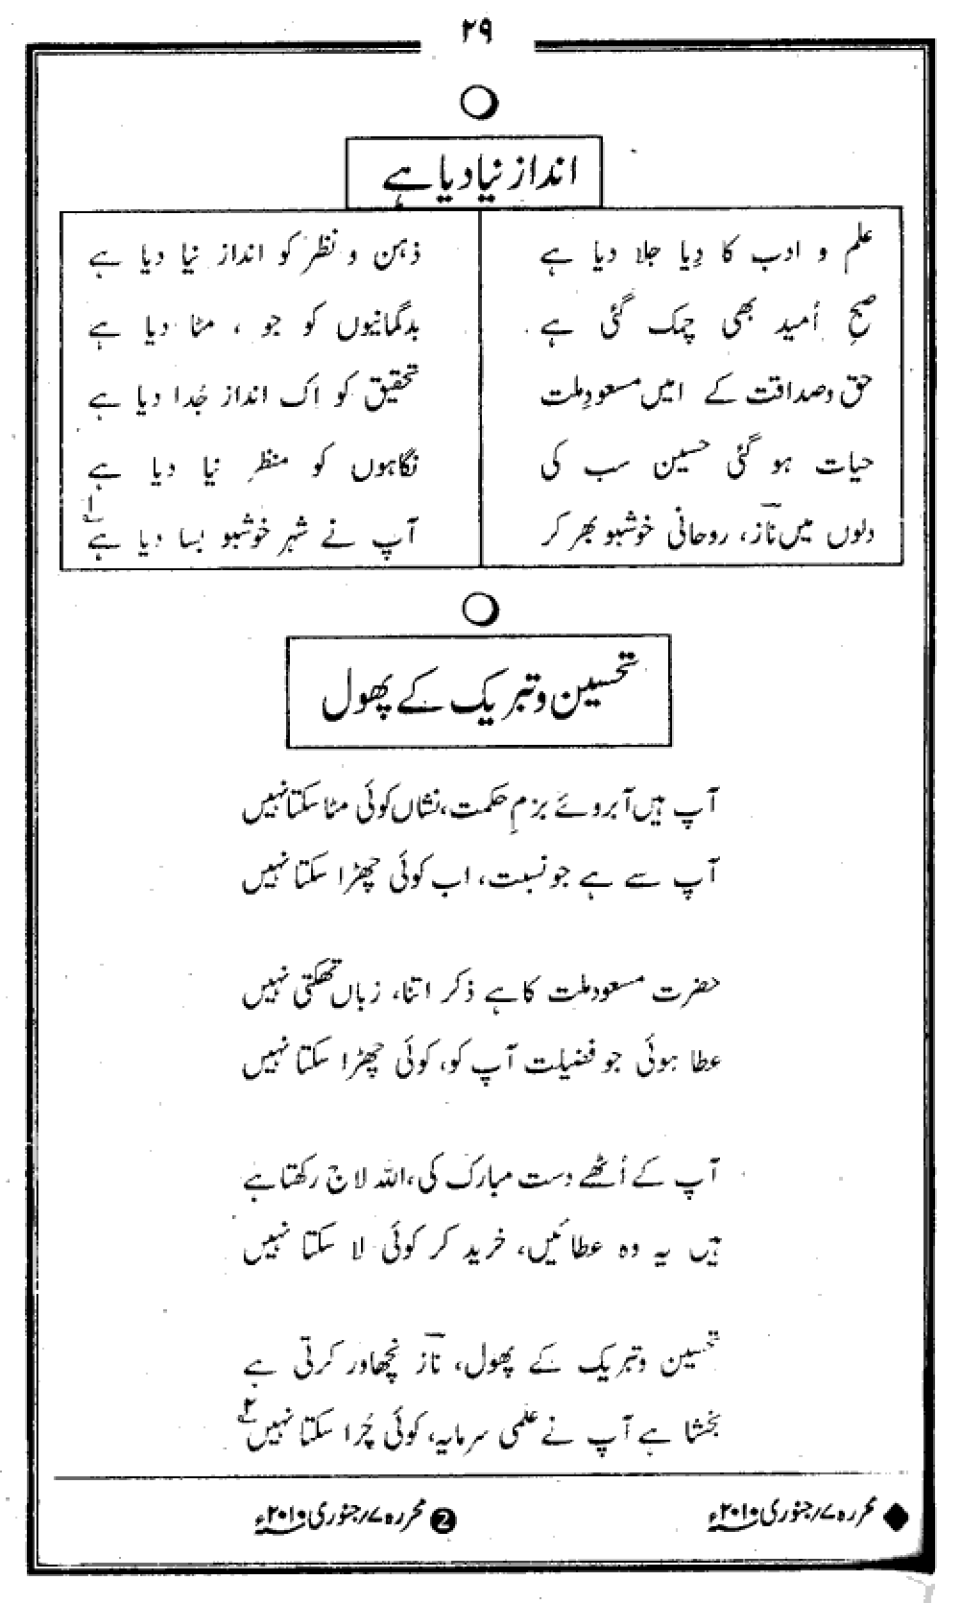 ۲۹
انداز نیا دیا ہے
علم و ادب کا دِیا جلا دیا ہے ذہن و نظر کو انداز نیا دیا ہے
صبحِ اُمید بھی چمک گئی ہے بدگمانیوں کو جو ، مٹا دیا ہے
حق و صداقت کے امیں مسعودِ ملت تحقیق کو اک انداز جُدا دیا ہے
حیات ہو گئی حسین سب کی نگاہوں کو منظر نیا دیا ہے
دلوں میں نازؔ، روحانی خوشبو بھر کر آپ نے شہر خوشبو بسا دیا ہے ۱
تحسین و تبریک کے پھول
آپ ہیں آبروئے بزمِ حکمت، نشاں کوئی مٹا سکتا نہیں
آپ سے ہے جو نسبت، اب کوئی چھڑا سکتا نہیں
حضرت مسعود ملت کا ہے ذکر اتنا، زباں تھکتی نہیں
عطا ہوئی جو فضیلت آپ کو، کوئی چھڑا سکتا نہیں
آپ کے اُٹھے دست مبارک کی، اللہ لاج رکھتا ہے
ہیں یہ وہ عطائیں، خرید کر کوئی لا سکتا نہیں
تحسین و تبریک کے پھول، نازؔ نچھاور کرتی ہے
بخشا ہے آپ نے علمی سرمایہ، کوئی چُرا سکتا نہیں ۲
◆ محررہ ۷/جنوری ۲۰۱۰ء ❷ محررہ ۷/جنوری ۲۰۱۰ء